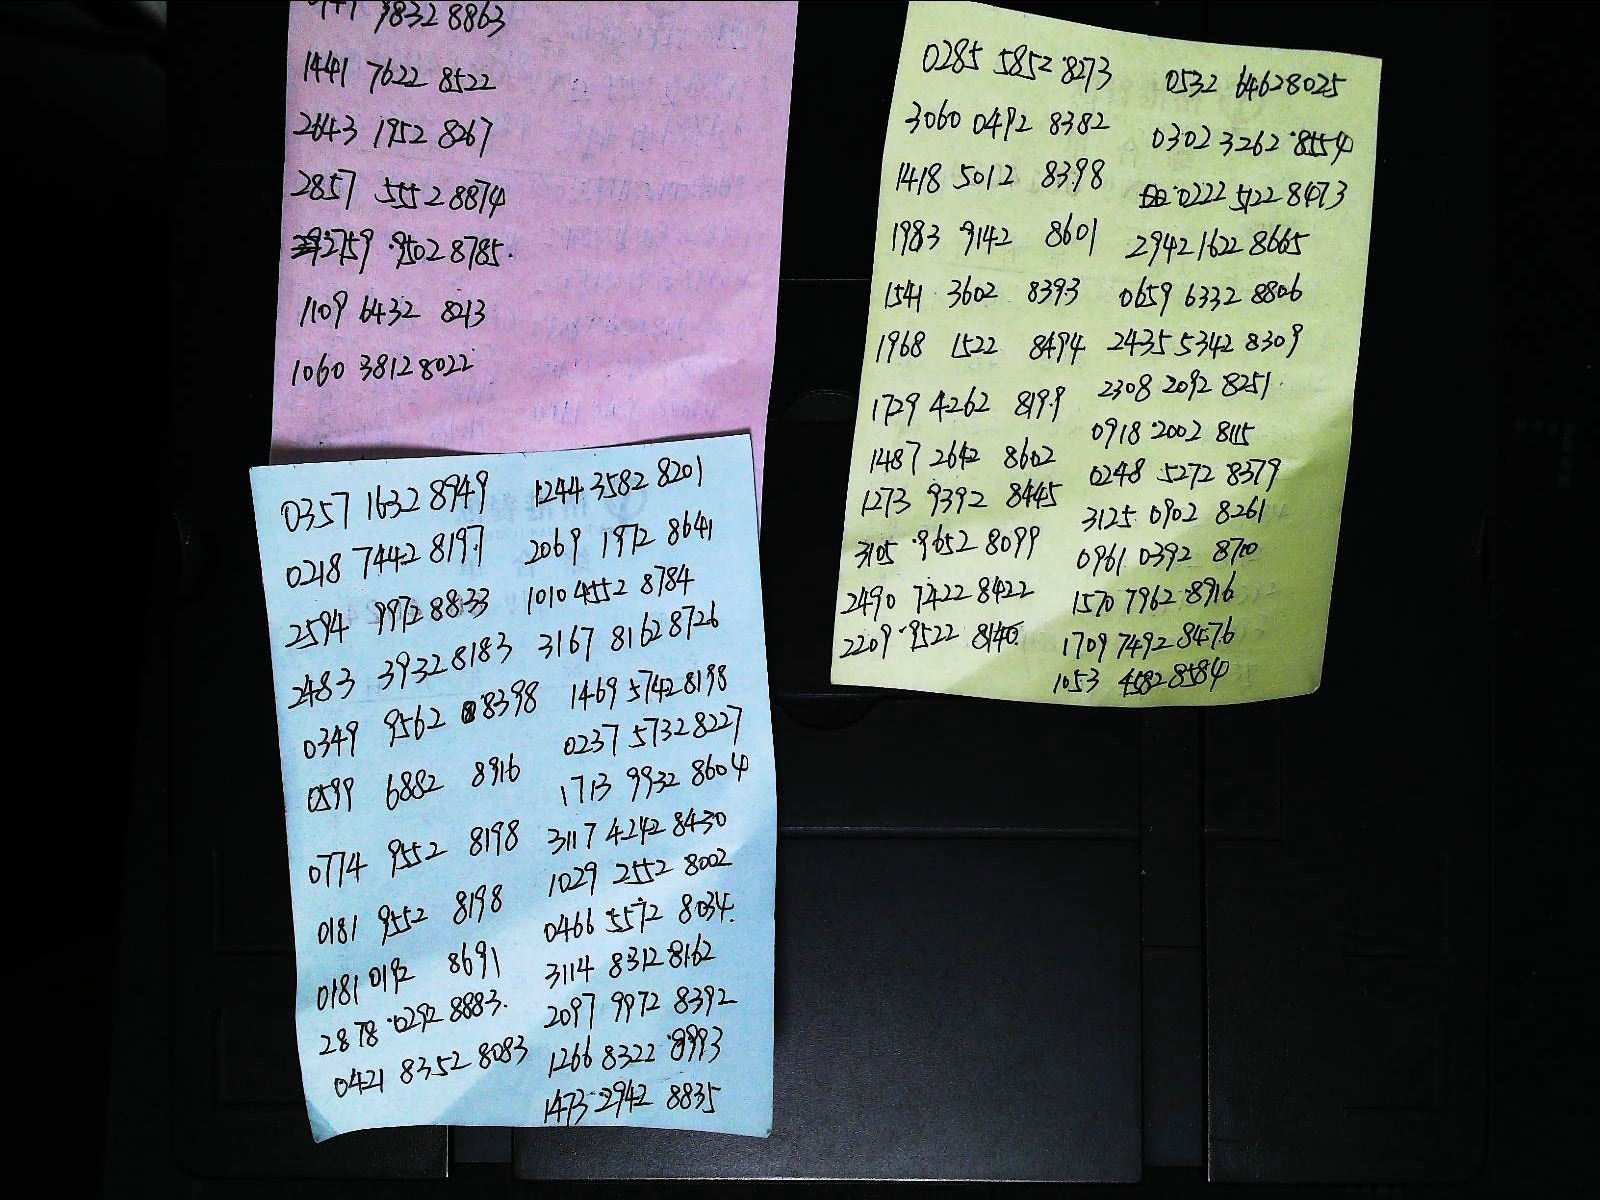 9832 8863
1441 7622 8522
2643 1952 8267
2857 5552 8874
2759 9502 8785.
1109 6432 8213
1060 3812 8022
0357 1632 8949
0218 7442 8197
2594 9972 8833
2483 3932 8183
0349 9562 8398
0599 6882 8916
0774 9552 8198
0181 9552 8198
0181 0192 8691
2878 0292 8883.
0421 8352 8083
1244 3582 8201
2069 1972 8641
1010 4552 8784
3167 8162 8726
1469 5742 8198
0237 5732 8227
1713 9932 8604
3117 4242 8430
1029 2552 8002
0466 5572 8034.
3114 8312 8162
2097 9972 8392
1266 8322 8993
1473 2942 8835
0285 5852 8273
3060 0492 8382
1418 5012 8398
1983 9142 8601
1541 3602 8393
1968 1522 8494
1729 4262 8199
1487 2642 8602
1273 9392 8445
3105 9652 8099
2490 7422 8422
2209 9522 8140
0532 6462 8025
0302 3262 8554
0222 5122 8473
2942 1622 8665
0659 6332 8806
2435 5342 8309
2308 2092 8251
0918 2002 8115
0248 5272 8379
3125 0902 8261
0961 0392 8710
1570 7962 8916
1709 7492 8476
1053 4582 8584